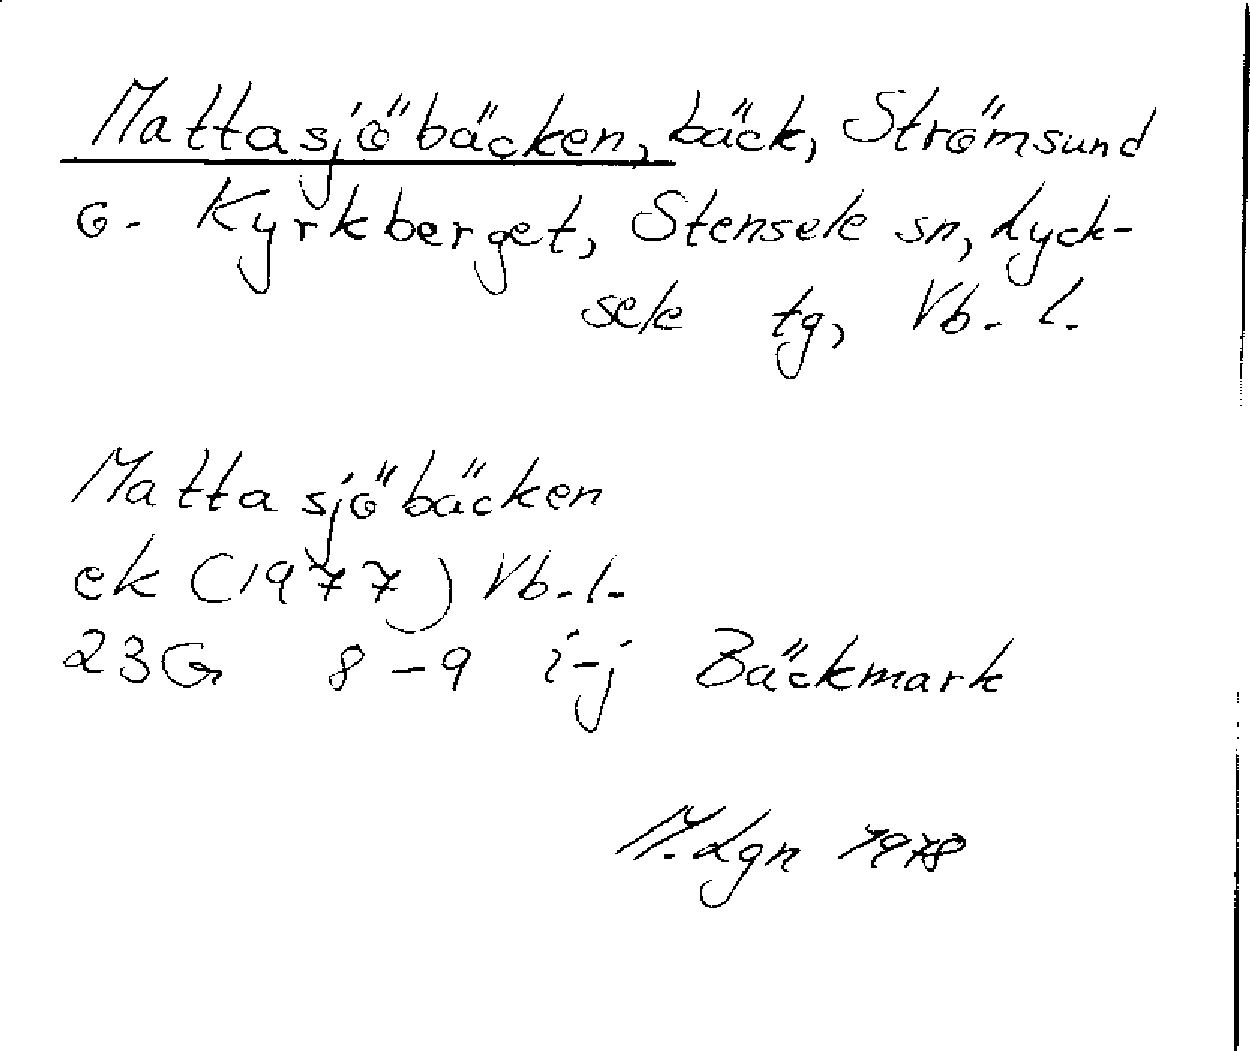 Mattasjöbäcken, bäck, Strömsund
o. Kyrkberget, Stensele sn, Lyck-
sele tg, Vb. l.
Mattasjöbäcken
ek (1977) Vb. l.
23G 8-9 i-j Bäckmark
M. Lgn 1978